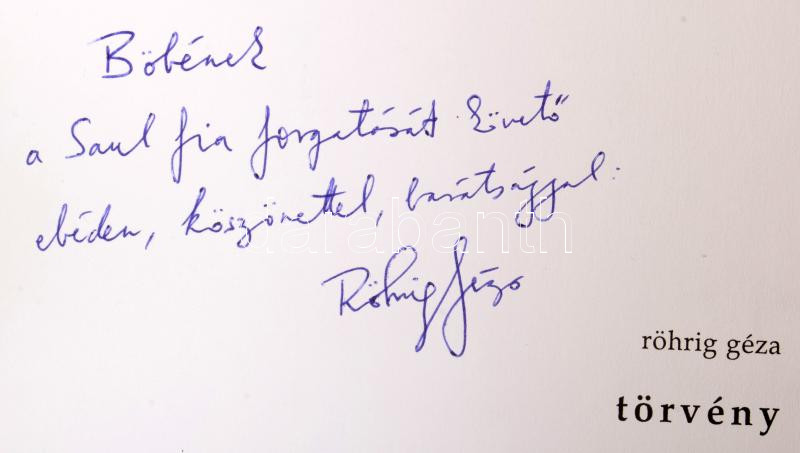 Böbének
a Saul fia forgatását követő
ebéden, köszönettel, barátsággal:
Röhrig Géza
darabanth
röhrig géza
törvény